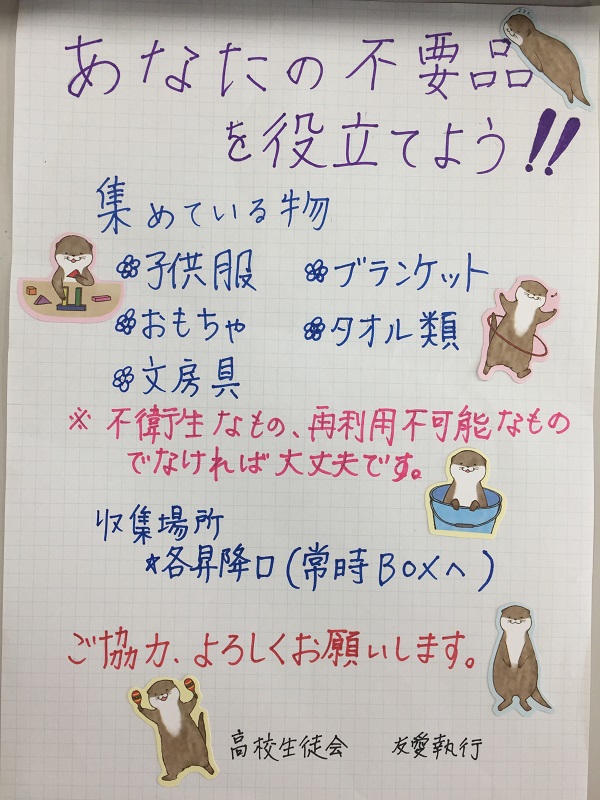 あなたの不要品
を役立てよう!!
集めている物
子供服 ブランケット
おもちゃ タオル類
文房具
※ 不衛生なもの、再利用不可能なもの
でなければ大丈夫です。
収集場所
★各昇降口(常時BOXへ)
ご協力、よろしくお願いします。
高校生徒会 友愛執行